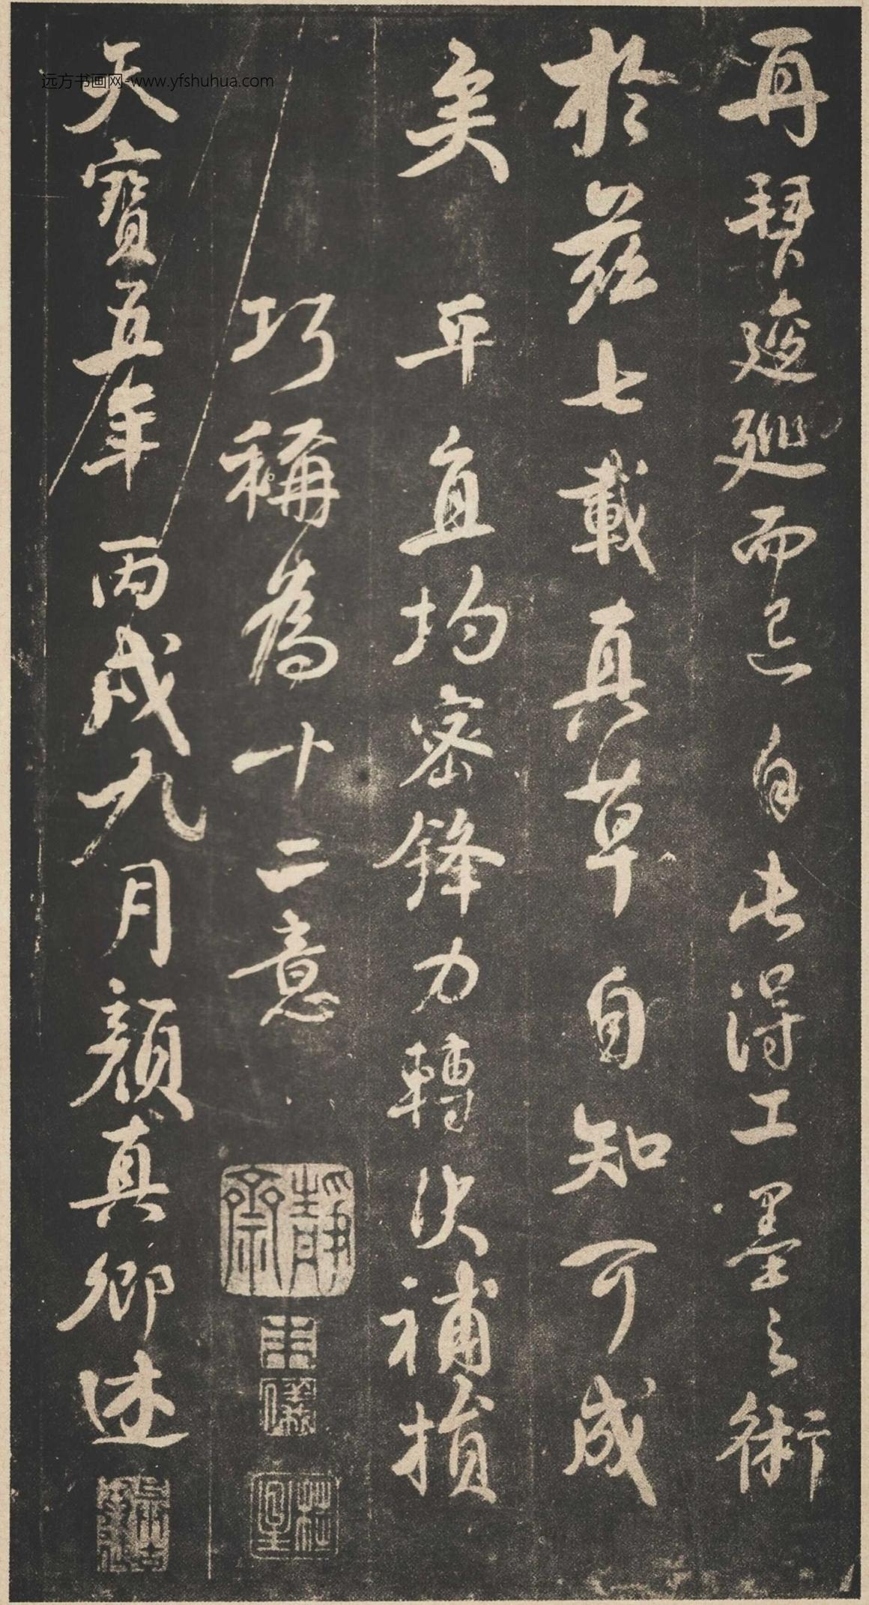 再拜逡巡而已自此得工墨之術
於茲七載真草自知可成
矣 平直均密鋒力轉決補損
巧稱為十二意
天寶五年丙戌九月顏真卿述
靜齋
远方书画网-www.yfshuhua.com